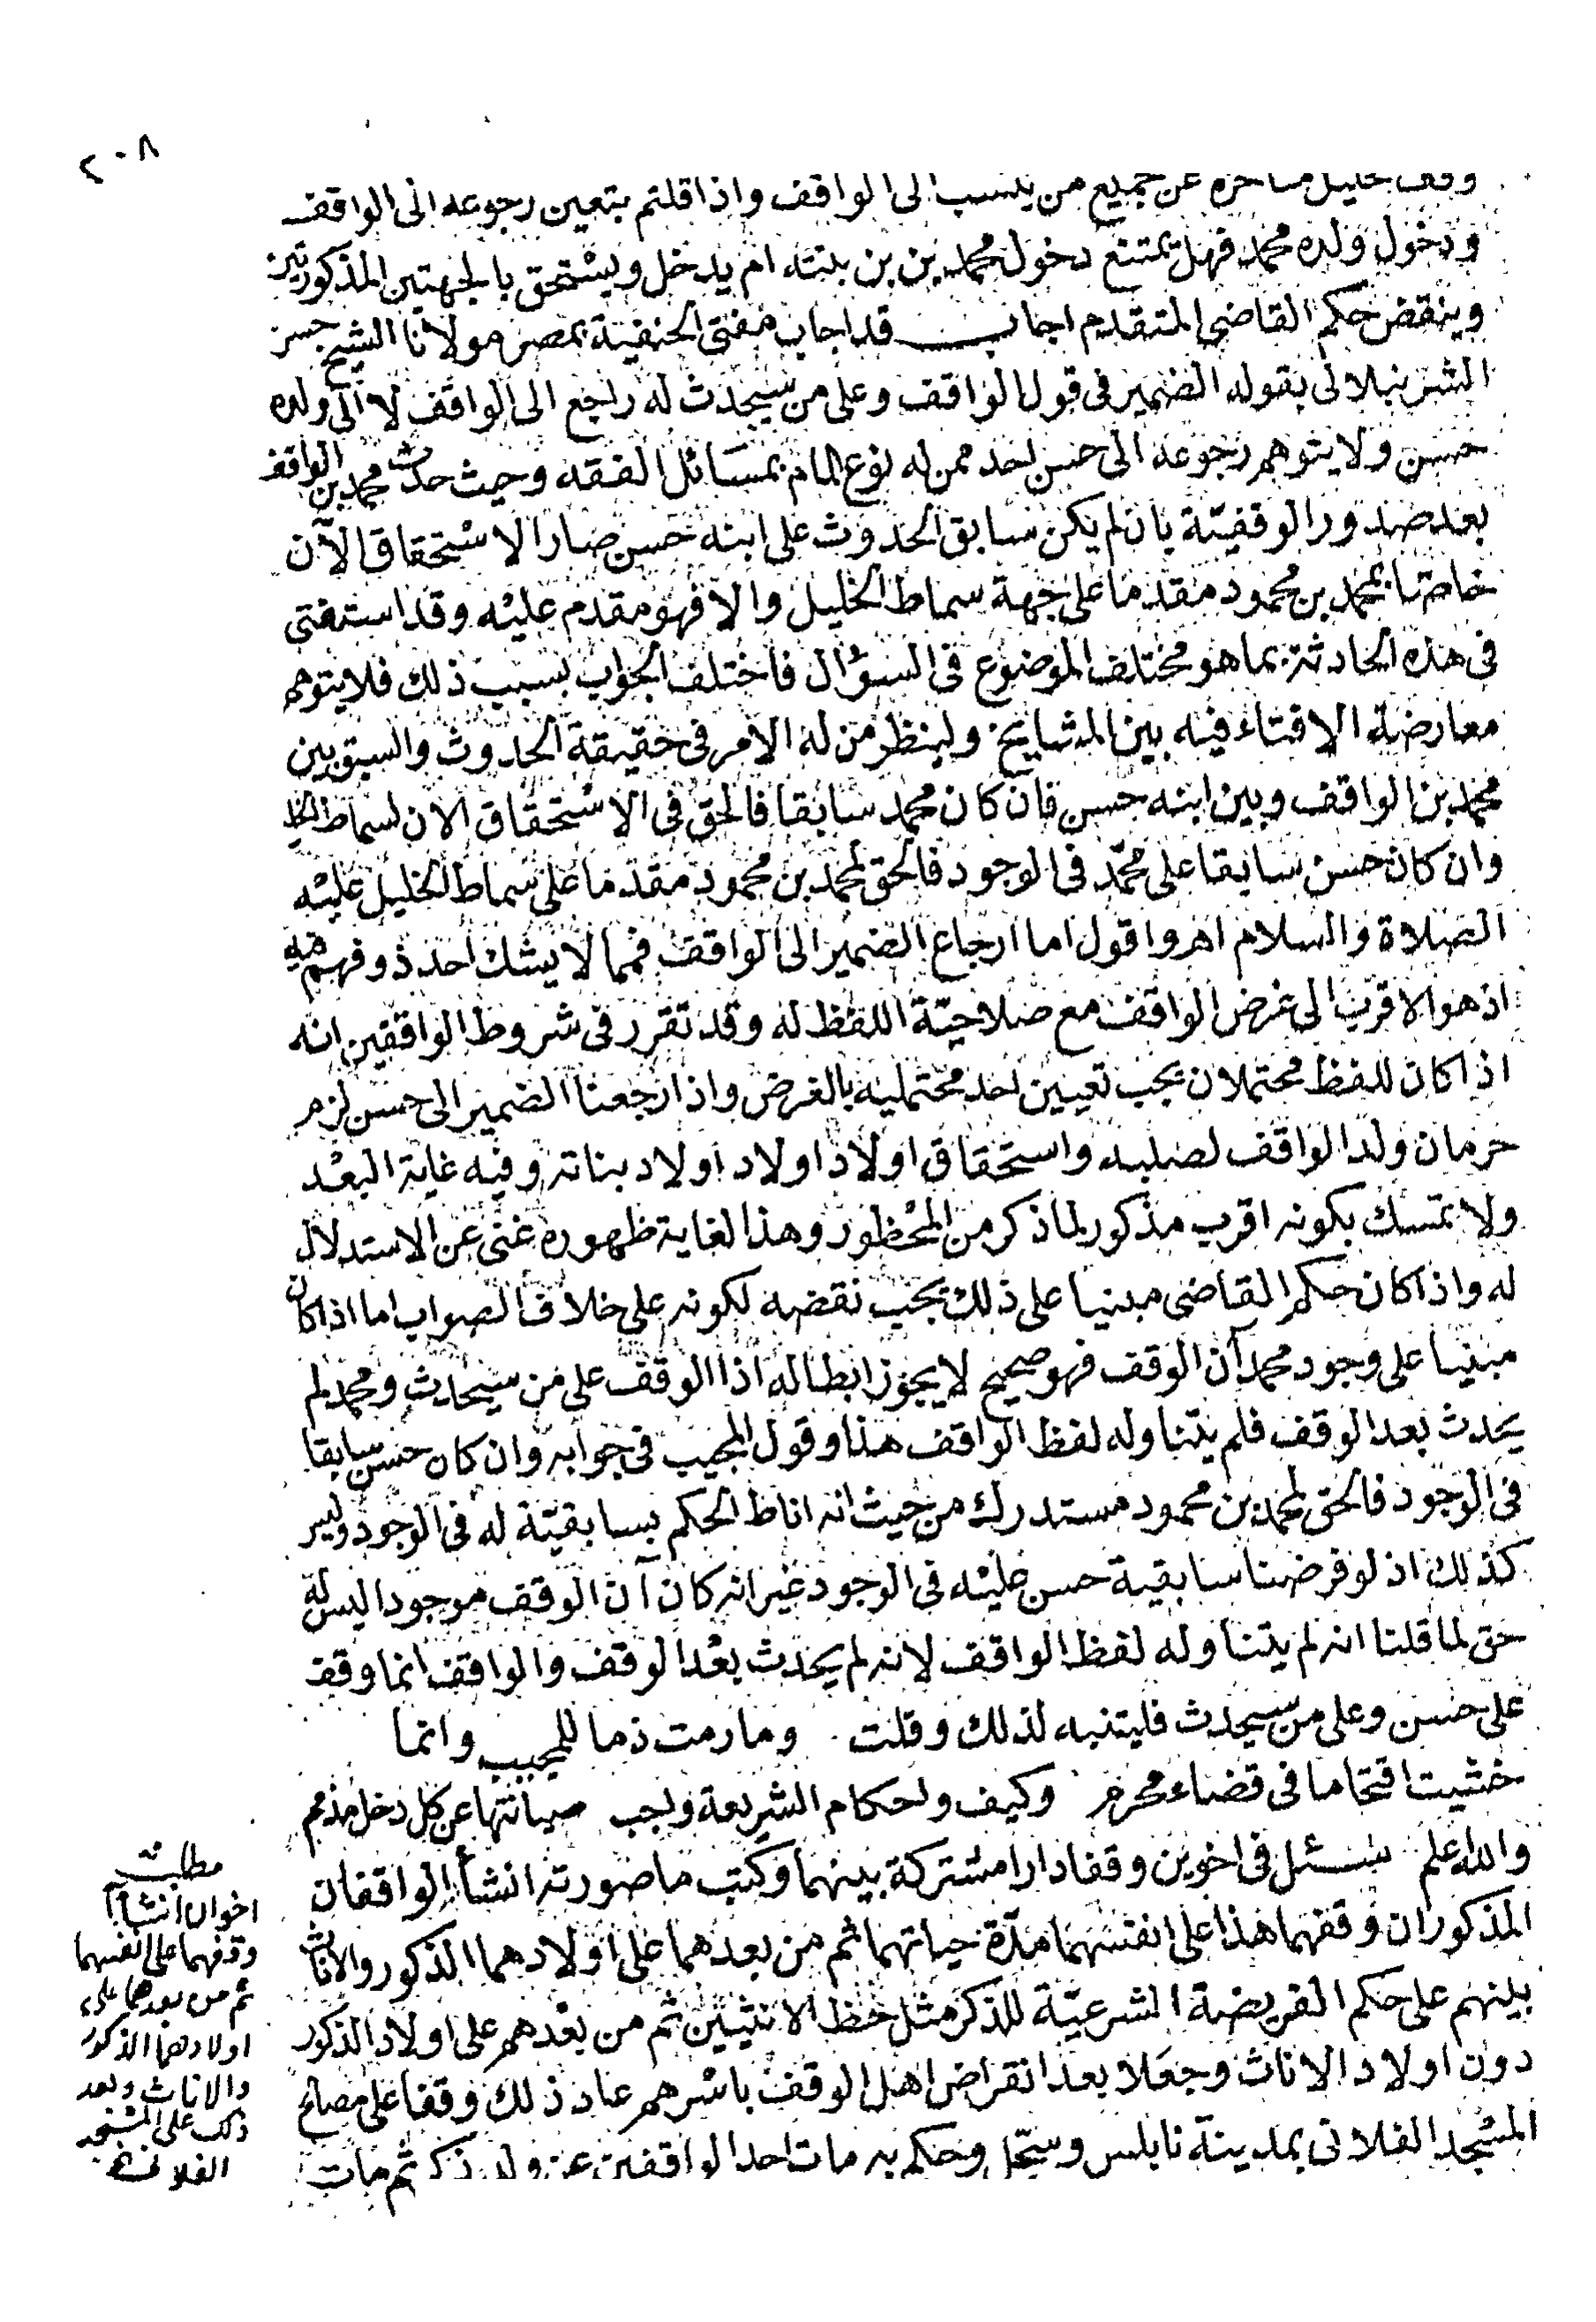 ٢٠٨
وقف خليل متأخره عن جميع من ينسب الى الواقف واذا قلتم بتعين رجوعه الى الواقف
ودخول ولده محمد فهل يمتنع دخول محمد بن بن بنته ام يدخل ويستحق بالجهتين المذكورتين
وينقض حكم القاضي المتقدم اجاب قد اجاب مفتى الحنفية بمصر مولانا الشيخ حسن
الشرنبلالى بقوله الضمير فى قول الواقف وعلى من سيحدث له راجع الى الواقف لا الى ولده
حسن ولا يتوهم رجوعه الى حسن احد ممن له نوع المام بمسائل الفقه وحيث حدث محمد بن الواقف
بعد صدور الوقفية بان لم يكن سابق الحدوث على ابنه حسن صار الاستحقاق الآن
خاصا بمحمد بن محمود مقدما على جهة سماط الخليل والا فهو مقدم عليه وقد استفتى
فى هذه الحادثة بما هو مختلف الموضوع فى السؤال فاختلف الجواب بسبب ذلك فلا يتوهم
معارضة الافتاء فيه بين المشايخ ولينظر من له الامر فى حقيقة الحدوث والسبق بين
محمد بن الواقف وبين ابنه حسن فان كان محمد سابقا فالحق فى الاستحقاق الان لسماط الخليل
وان كان حسن سابقا على محمد فى الوجود فالحق لمحمد بن محمود مقدما على سماط الخليل عليه
الصلاة والسلام اهـ واقول اما ارجاع الضمير الى الواقف فمما لا يشك احد ذو فهم فيه
اذ هو الاقرب الى غرض الواقف مع صلاحية اللفظ له وقد تقرر فى شروط الواقفين انه
اذا كان للفظ محتملان يجب تعيين احد محتمليه بالغرض واذا ارجعنا الضمير الى حسن لزم
حرمان ولد الواقف لصلبه واستحقاق اولاد اولاد بناته وفيه غاية البعد
ولا تمسك بكونه اقرب مذكور لما ذكر من المحظور وهذا لغاية ظهوره غنى عن الاستدلال
له واذا كان حكم القاضى مبنيا على ذلك يجب نقضه لكونه على خلاف الصواب اما اذا كان
مبنيا على وجود محمد آن الوقف فهو صحيح لا يجوز ابطاله اذا الوقف على من سيحدث ومحمد لم
يحدث بعد الوقف فلم يتناوله لفظ الواقف هذا وقول المجيب فى جوابه وان كان حسن سابقا
فى الوجود فالحق لمحمد بن محمود مستدرك من حيث انه اناط الحكم بسابقية له فى الوجود وليس
كذلك اذ لو فرضنا سابقية حسن عليه فى الوجود غير انه كان آن الوقف موجودا ليس له
حق لما قلنا انه لم يتناوله لفظ الواقف لانه لم يحدث بعد الوقف والواقف انما وقف
على حسن وعلى من سيحدث فليتنبه لذلك وقلت وما رمت ذما للمجيب وانما
خشيت اقتحاما فى قضاء محرم وكيف واحكام الشريعة واجب صيانتها عن كل دخل مذمم
والله اعلم سئل فى اخوين وقفا دارا مشتركة بينهما وكتب ما صورته انشأ الواقفان
المذكوران وقفهما هذا على انفسهما مدة حياتهما ثم من بعدهما على اولادهما الذكور والاناث
بينهم على حكم الفريضة الشرعية للذكر مثل حظ الانثيين ثم من بعدهم على اولاد الذكور
دون اولاد الاناث وجعلا بعد انقراض اهل الوقف باسرهم عاد ذلك وقفا على مصالح
المسجد الفلانى بمدينة نابلس وسجل وحكم به مات احد الواقفين عن ولد ذكر ثم مات
مطلب
اخوان انشآ
وقفهما على انفسهما
ثم من بعدهما على
اولادهما الذكور
والاناث وبعد
ذلك على المسجد
الفلانى